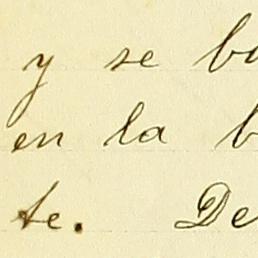 y se
en la
te. De